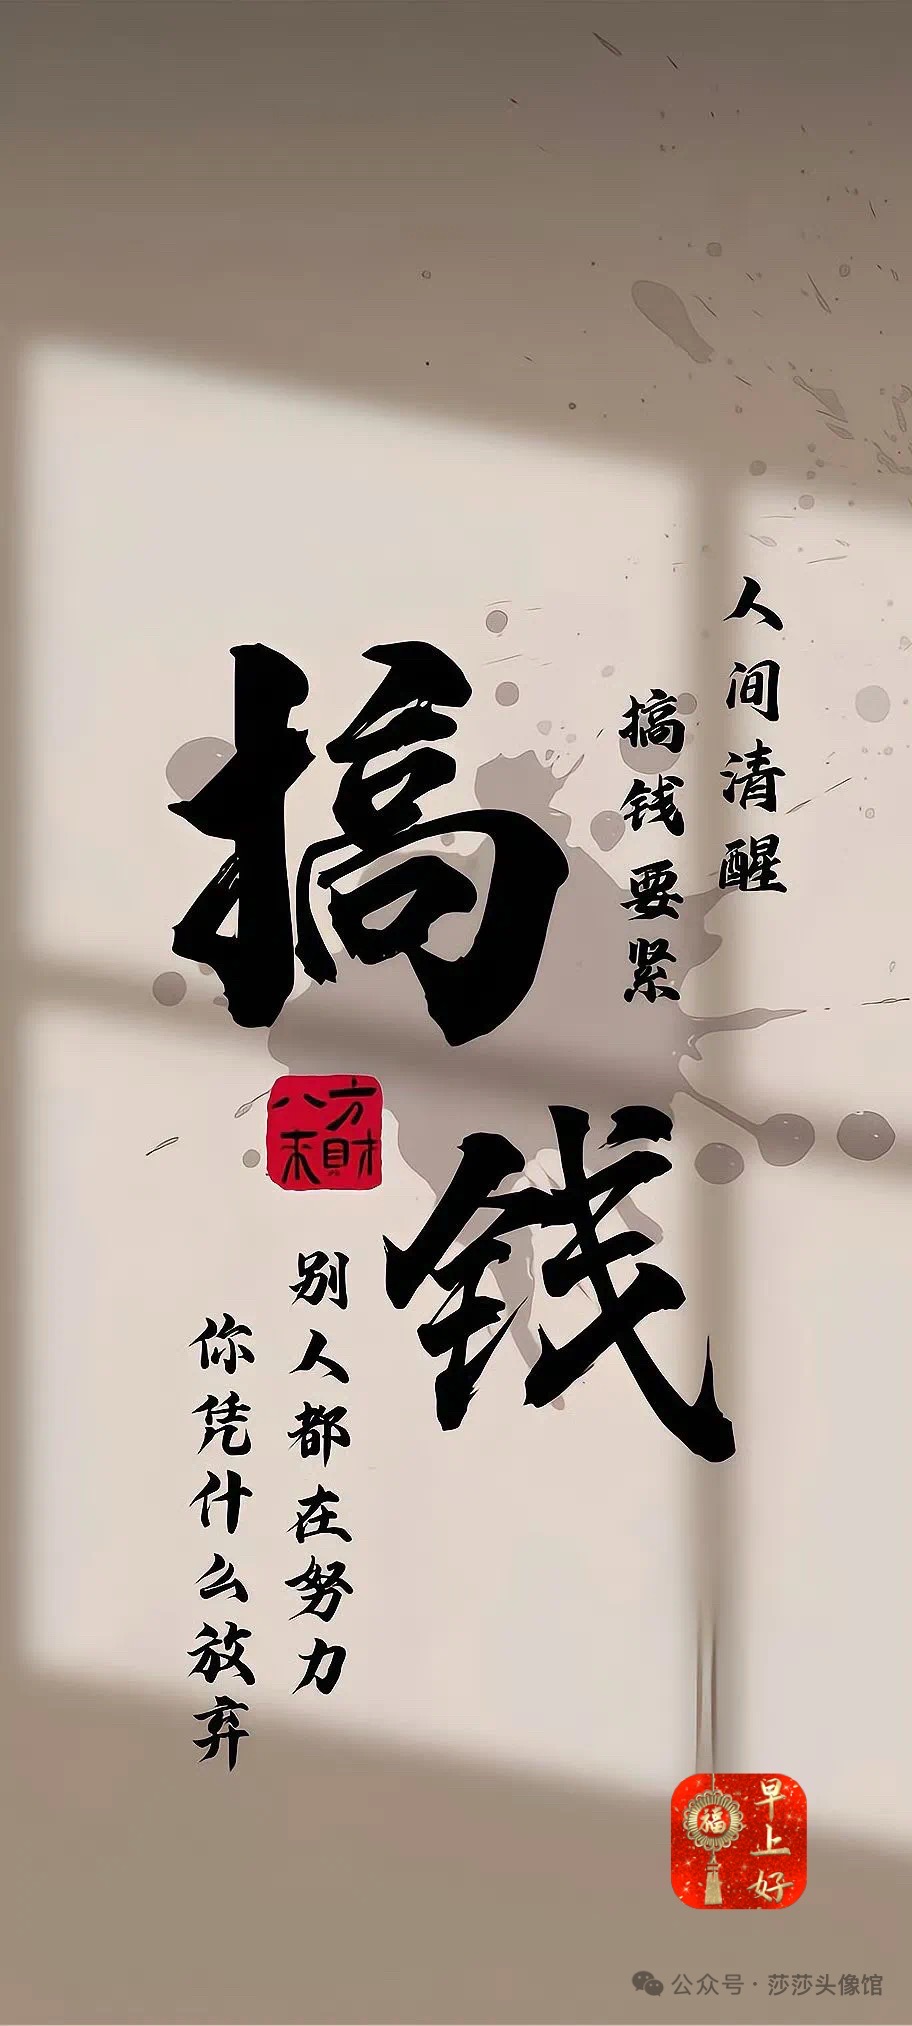 人间清醒
搞钱要紧
搞钱
八方
来財
别人都在努力
你凭什么放弃
福
早上好
公众号·莎莎头像馆